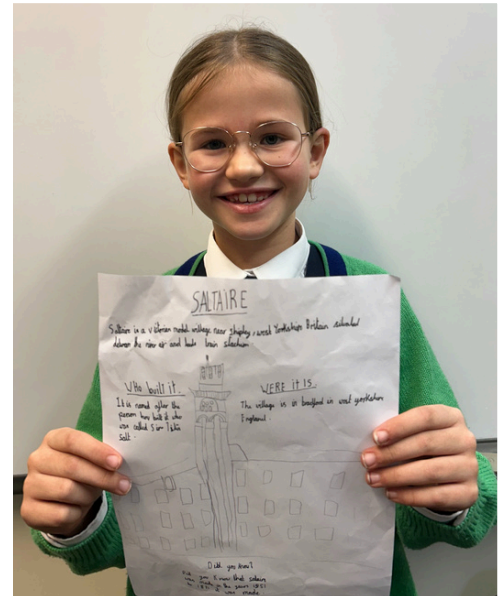 SALTAIRE
Saltaire is a victorian model village near shipley, west Yorkshire Britain situated
between the river
Who built it.
It is named after the
person how built it who
was called Sir Titus
Salt.
WERE it IS.
The village is in bradford in west yorkshire
England.
Did you know?
Did you know that saltaire
was made in the years 1851
to 1871 it was made